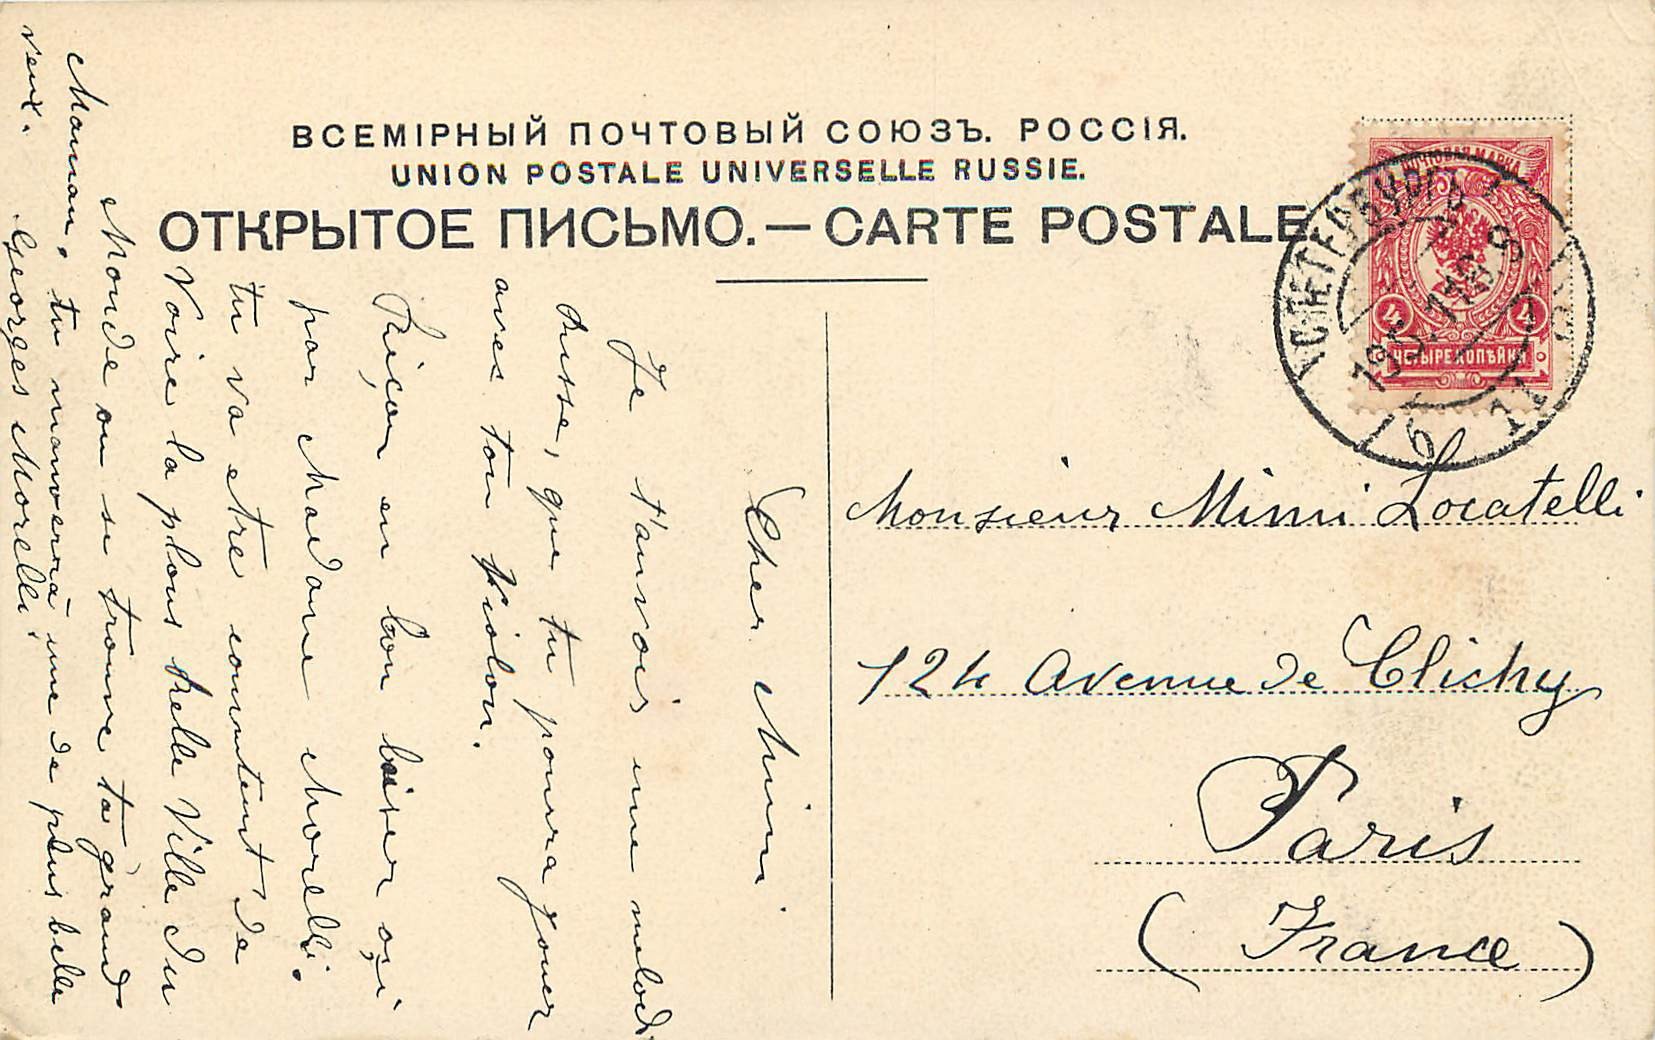 ВСЕМІРНЫЙ ПОЧТОВЫЙ СОЮЗЪ. РОССІЯ.
UNION POSTALE UNIVERSELLE RUSSIE.
ОТКРЫТОЕ ПИСЬМО. — CARTE POSTALE
ПОЧТОВАЯ МАРКА
4 4
ЧЕТЫРЕ КОПѢЙКИ
С. ПЕТЕРБУРГЪ
Monsieur Mimi Locatelli
124 Avenue de Clichy
Paris
(France)
Cher Mimi
Je t'anvois une melodi
Russe, que tu pourra jouer
avec ton Violon.
Riçois en bon baiser oçi
par Madame Morelli.
tu va etre countent de
Voire la plous belle Ville du
Monde ou se trouve ta grand
Maman, tu manverra une de plus belle
veux.
Georges Morelli.